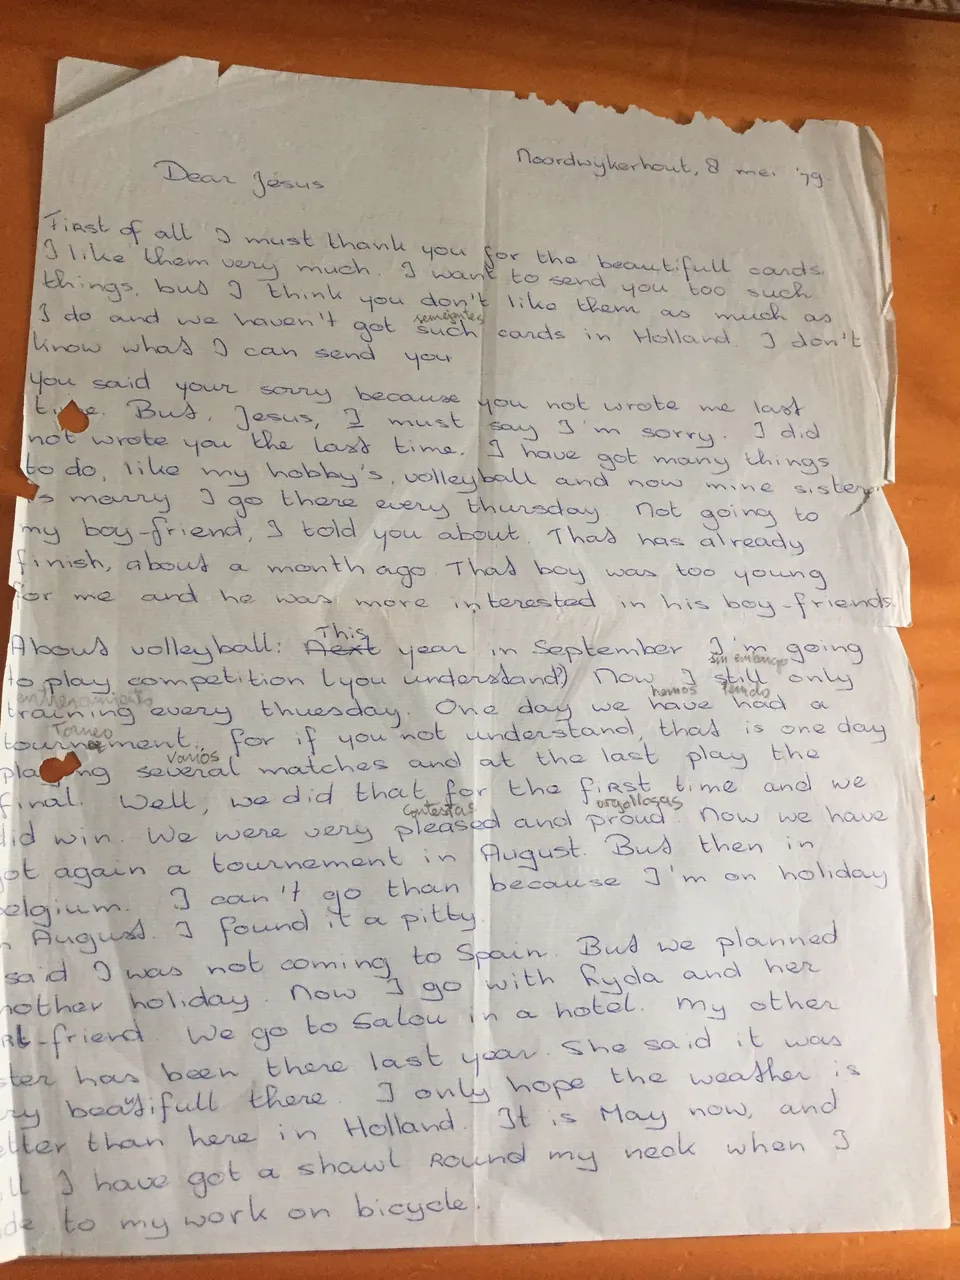 Noordwijkerhout, 8 mei '79.
Dear Jesus
First of all I must thank you for the beautifull cards.
I like them very much. I want to send you too such
things, but I think you don't like them as much as
semejantes
I do and we haven't got such cards in Holland. I don't
know what I can send you
you said your sorry because you not wrote me last
But, Jesus, I must say I'm sorry. I did
not wrote you the last time. I have got many things
to do, like my hobby's, volleyball and now mine sister
's marry I go there every thursday. Not going to
my boy-friend, I told you about. That has already
finish, about a month ago. That boy was too young
for me and he was more interested in his boy-friends.
This
About volleyball: Next year in September I'm going
sin embargo
to play competition (you understand?) Now I still only
entrenamiento hemos tenido
training every thuesday. One day we have had a
Torneo
tournement, for if you not understand, that is one day
varios
playing several matches and at the last play the
final. Well, we did that for the first time and we
contestas orgollosas
did win. We were very pleased and proud. Now we have
got again a tournement in August. But then in
Belgium. I can't go than because I'm on holiday
August. I found it a pitty.
said I was not coming to Spain. But we planned
nother holiday. Now I go with Lyda and her
friend. We go to Salou in a hotel. My other
ster has been there last year. She said it was
ry beatifull there. I only hope the weather is
etter than here in Holland. It is May now, and
ll I have got a shawl round my neck when I
de to my work on bicycle.